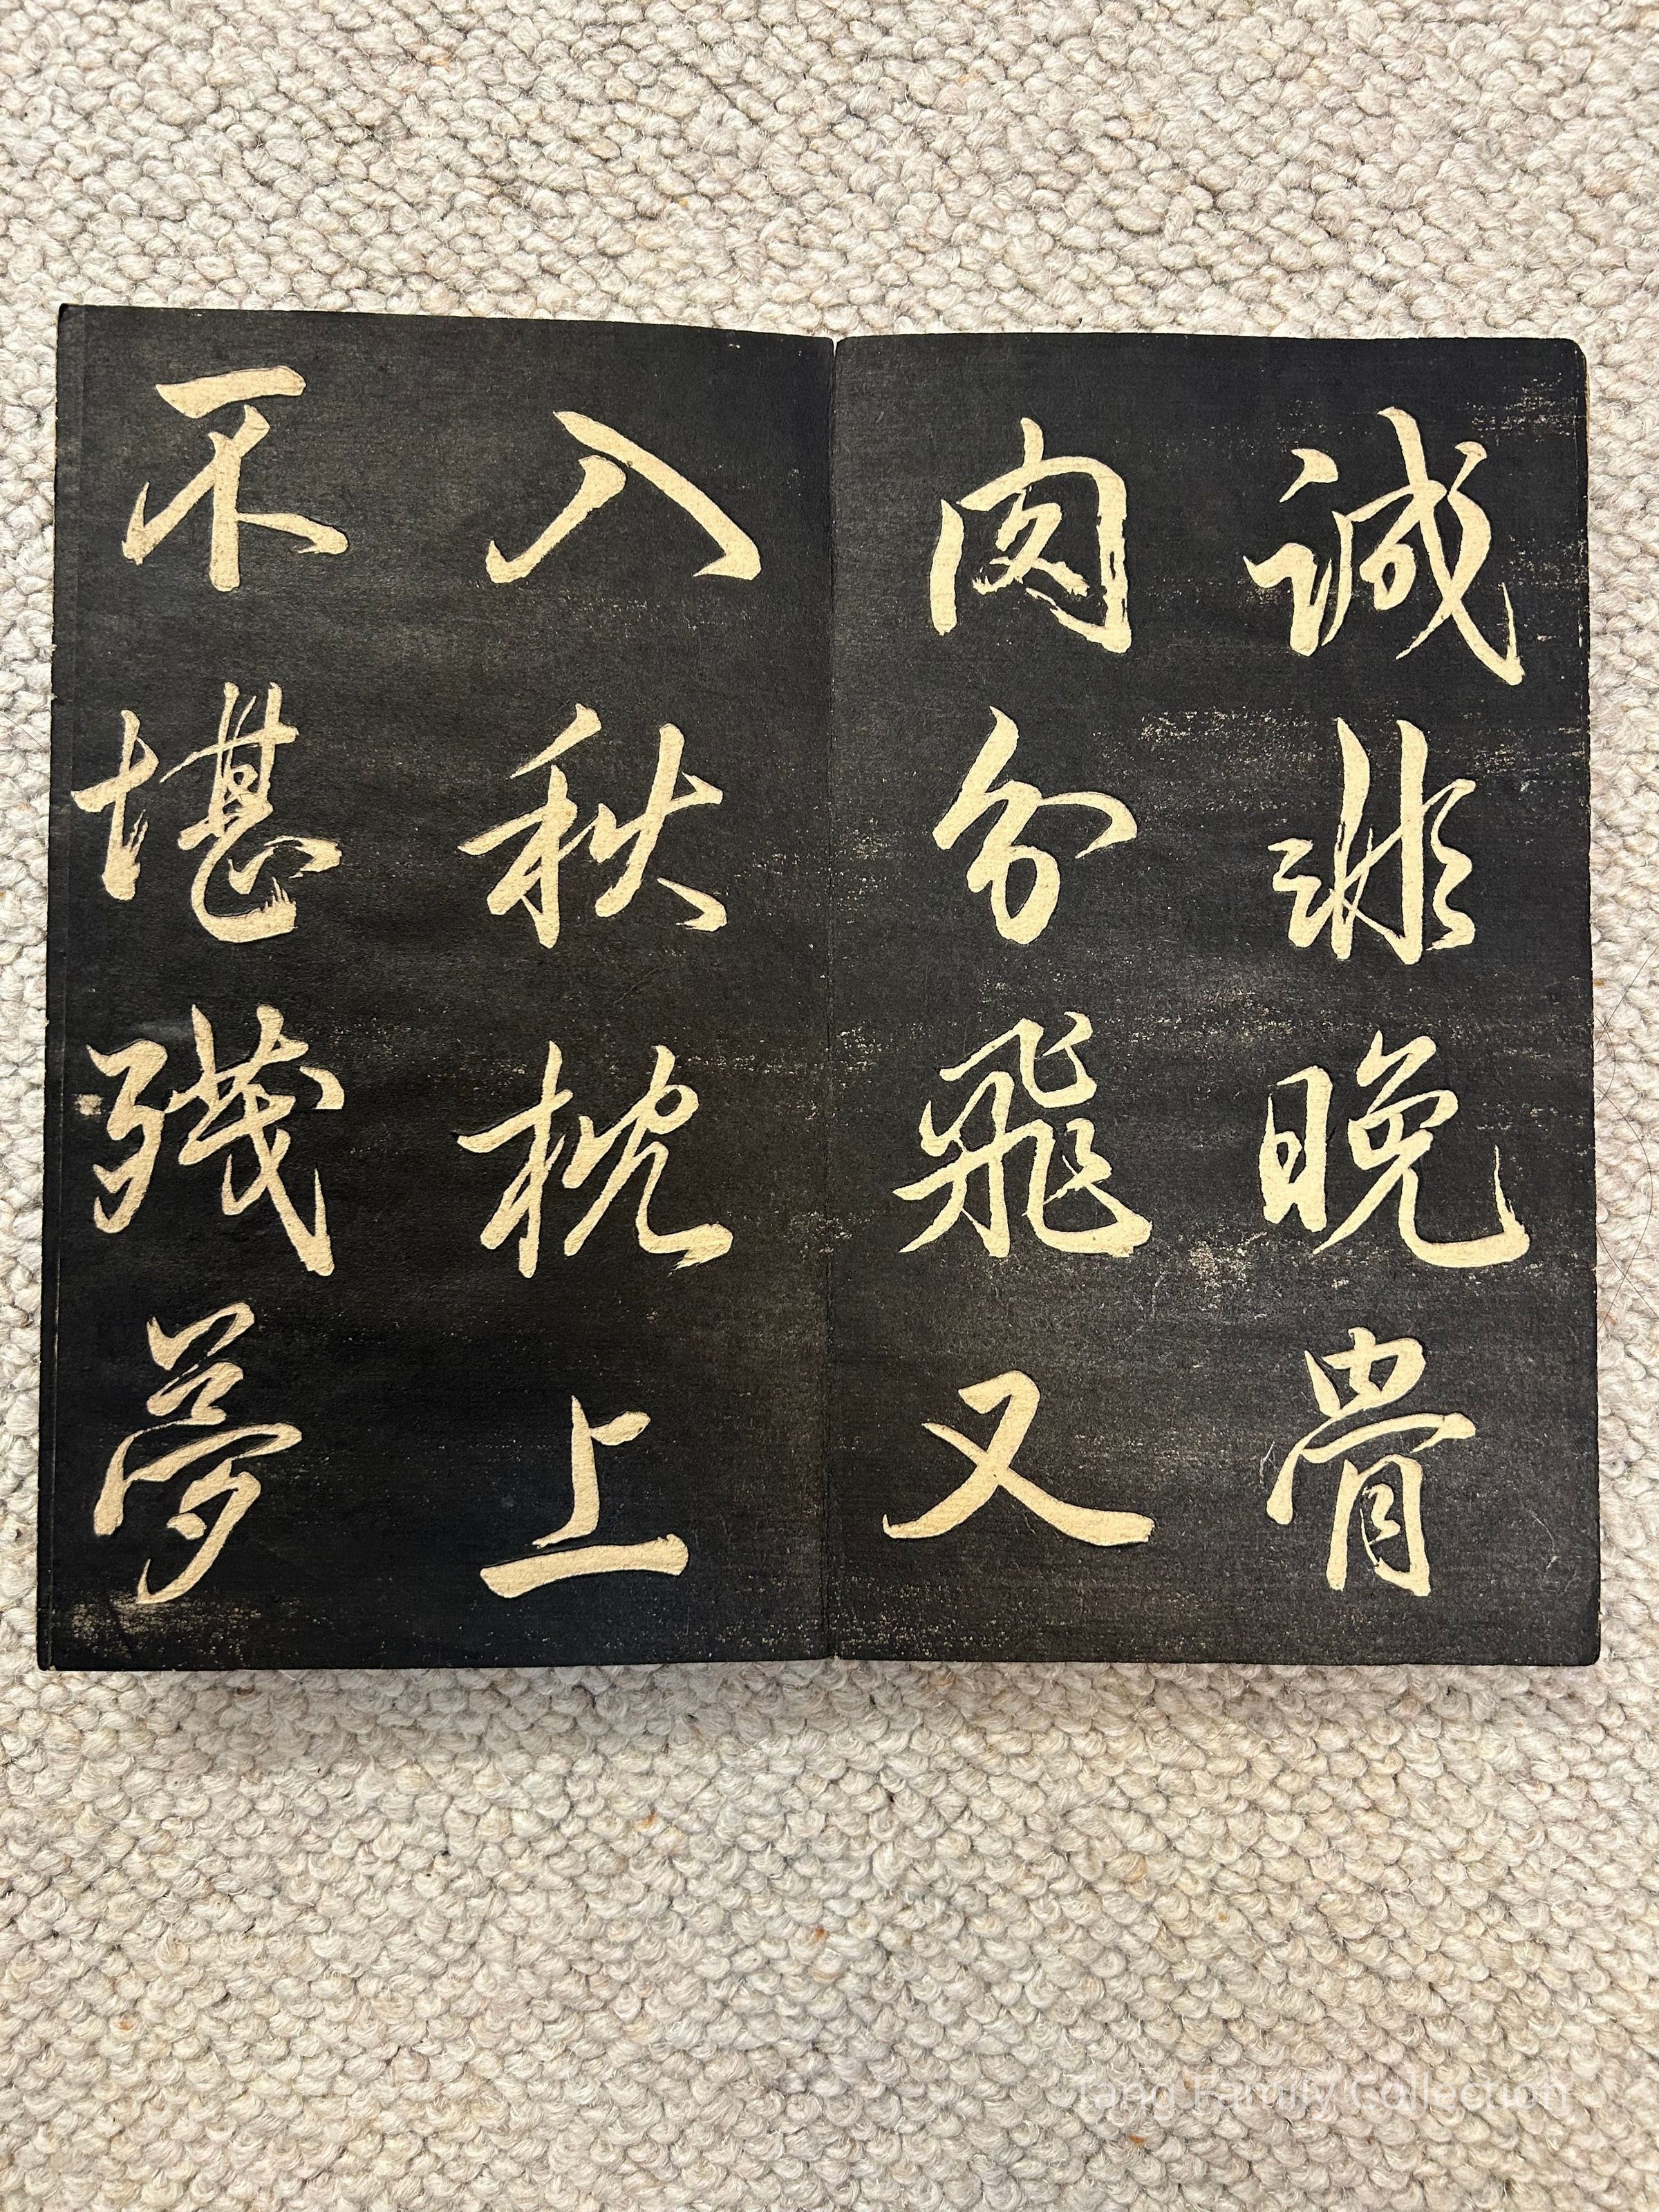 誠非晚骨
肉分飛又
入秋枕上
不堪殘夢
Tang Family Collection